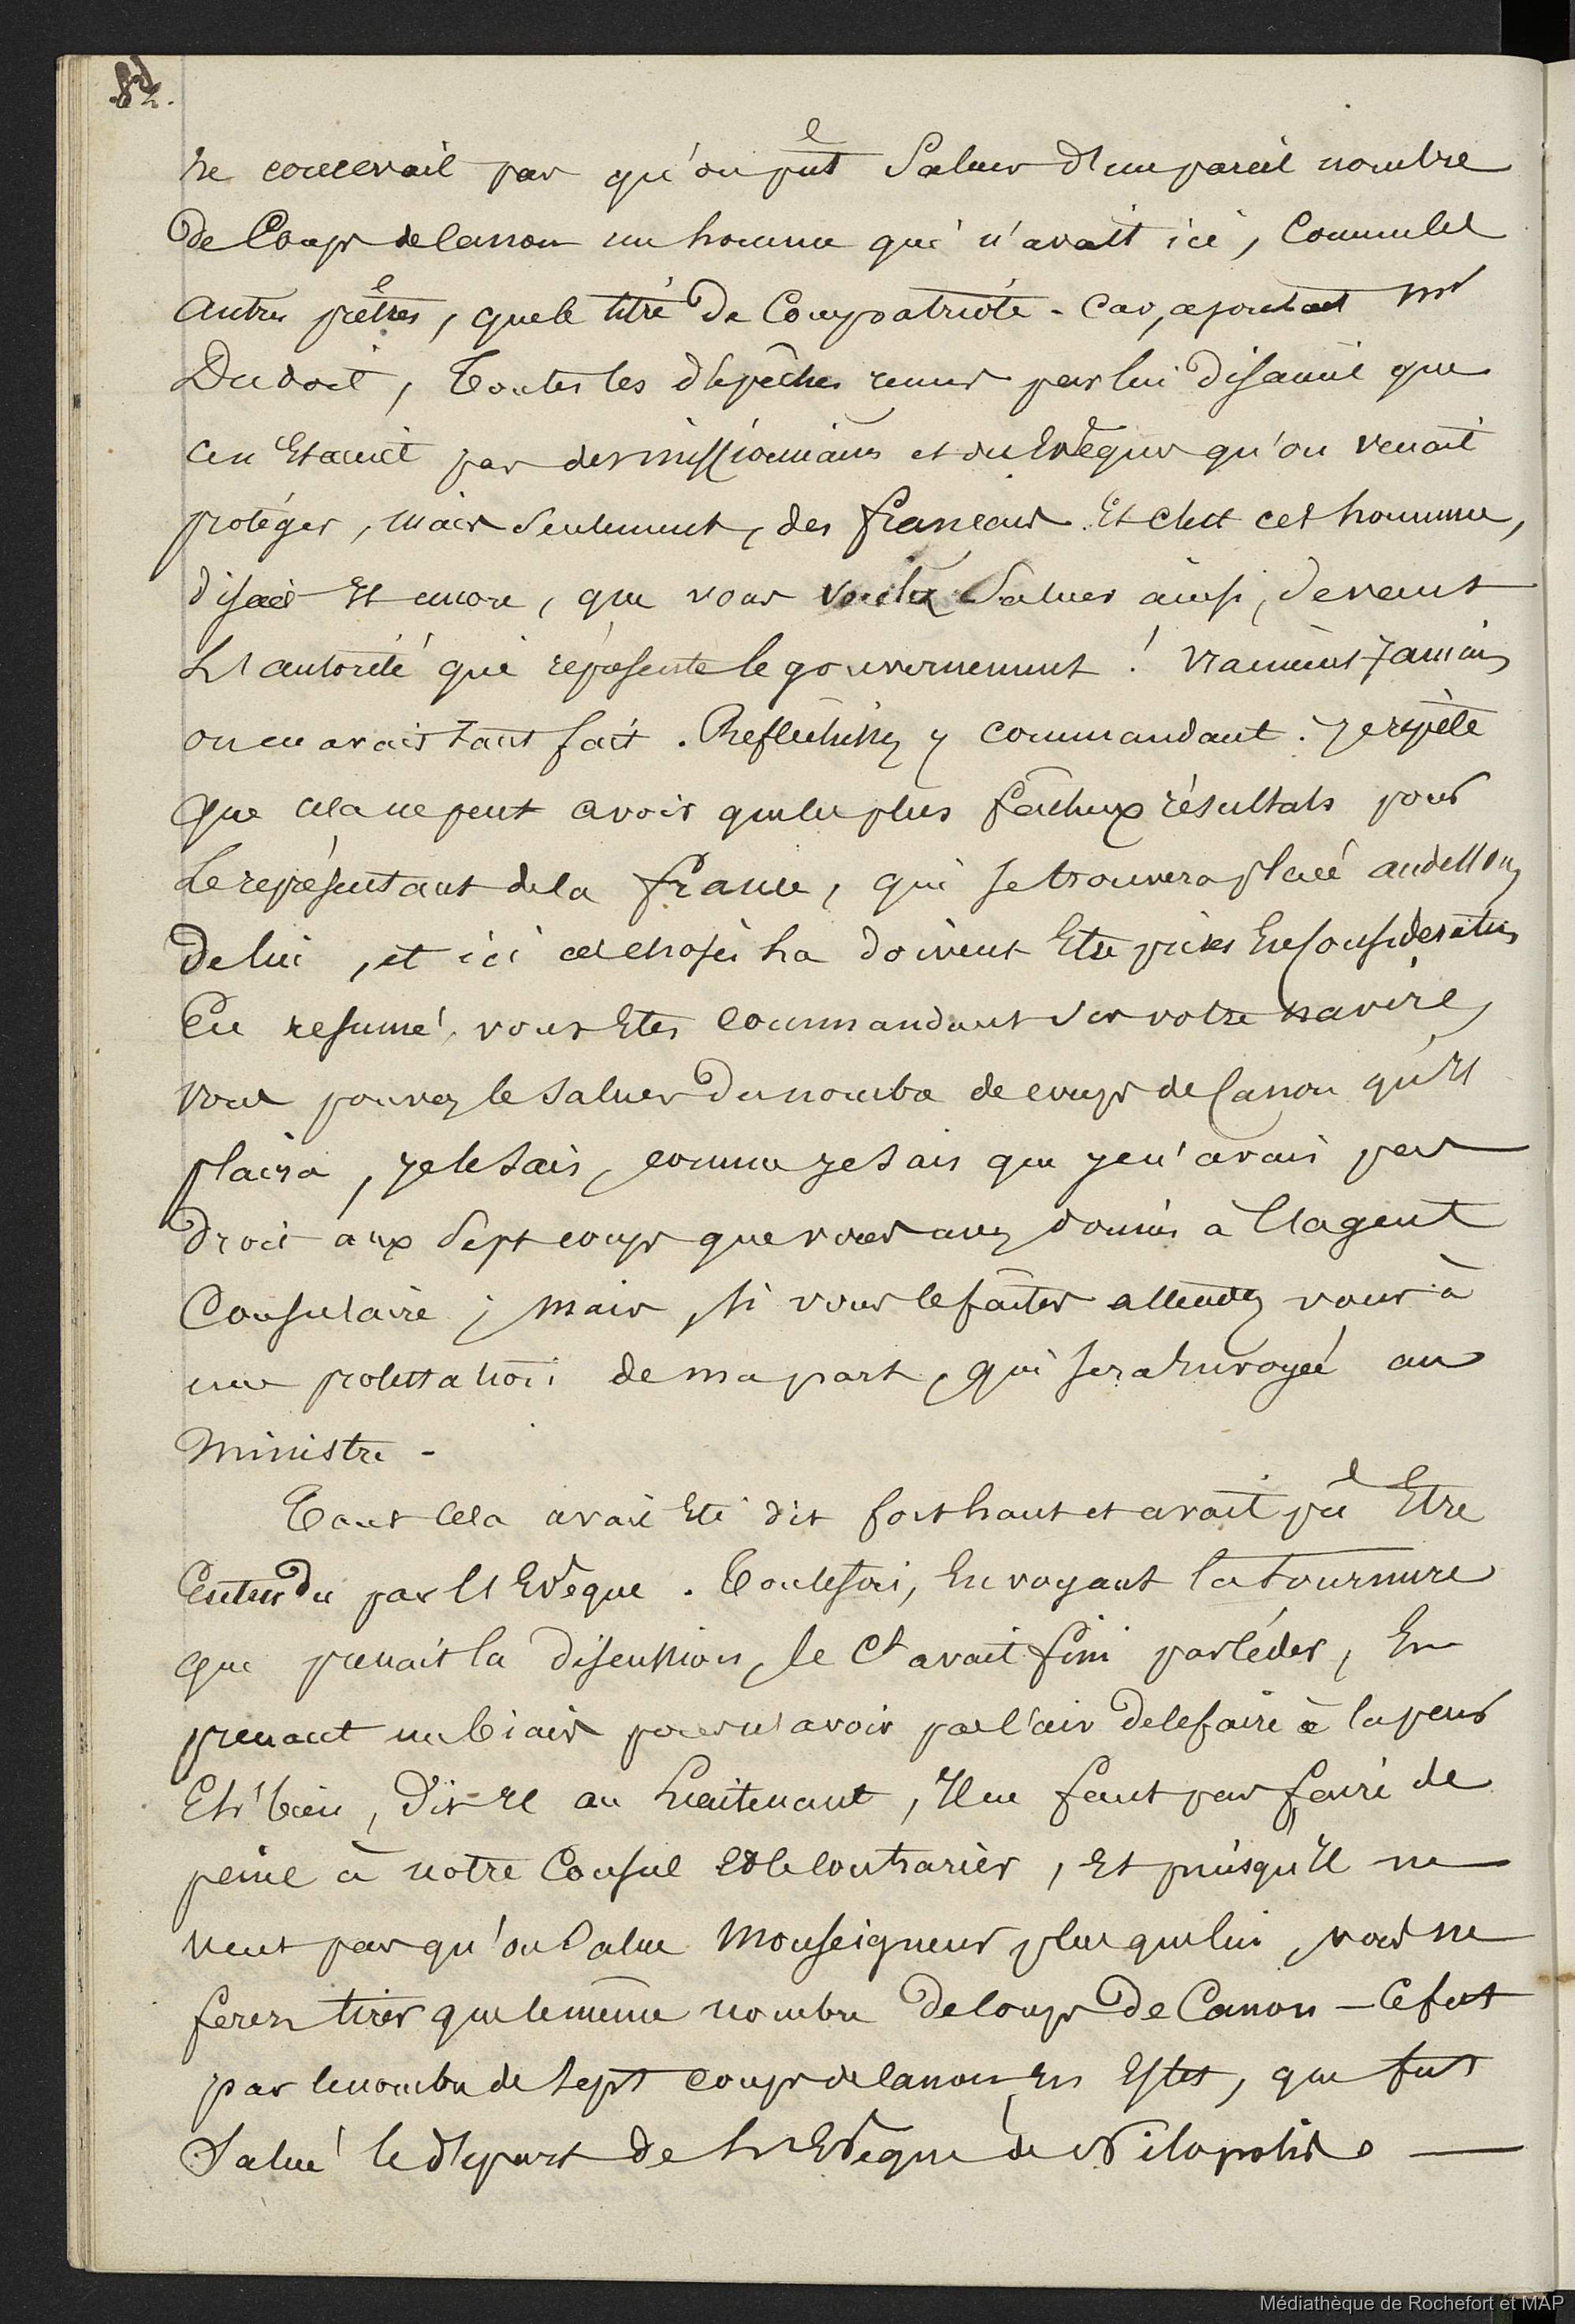 82.
ne concevait pas qu'on pût Saluer d'un pareil nombre
de Coups de Canon un homme qui n'avait ici, Comme les
autres prêtres, que le titre de Compatriote. Car, ajoutait Mr
Dudoit, Toutes les dépêches reçues par lui disaient que
ce n'Etaient pas des missionnaires et des Evêques qu'on venait
protéger, mais Seulement, des français. Et c'est cet homme,
disait Il encore, que vous voulez Saluer ainsi, devant
L'autorité qui représente le gouvernement ! Vraiment Jamais
on en avait tant fait. Réfléchissez y commandant. Je répète
que cela ne peut avoir que les plus fâcheux résultats pour
Le représentant de la france, qui se trouvera placé au dessous
de lui, et ici ces choses là doivent Etre prises En Considération
En résumé, vous Etes commandant sur votre navire,
vous pouvez le saluer du nombre de coups de Canon qu'Il
plaira, je le sais, comme je sais que je n'avais pas
droit aux Sept coups que vous avez donnés à l'agent
Consulaire ; mais, si vous le faites attendez vous à
une protestation de ma part, qui sera Envoyée au
Ministre -
Tout cela avait Eté dit fort haut et avait pû Etre
Entendu par l'Evêque. Toutefois, En voyant la tournure
que prenait la discussion, le Ct avait fini par céder, En
prenant un biais pour n'avoir pas l'air de le faire à la peur
Eh ! bien, dit-Il au Lieutenant, Il ne faut pas faire de
peine à notre Consul et le contrarier, Et puisqu'Il ne
veut pas qu'on Salue Monseigneur plus que lui, vous ne
ferez tirer que le même nombre de Coups de Canon — Ce fut
par le nombre de Sept coups de canon, En Effet, que fut
Salué le départ de L'Evêque de Nilopolis. —
Médiathèque de Rochefort et MAP